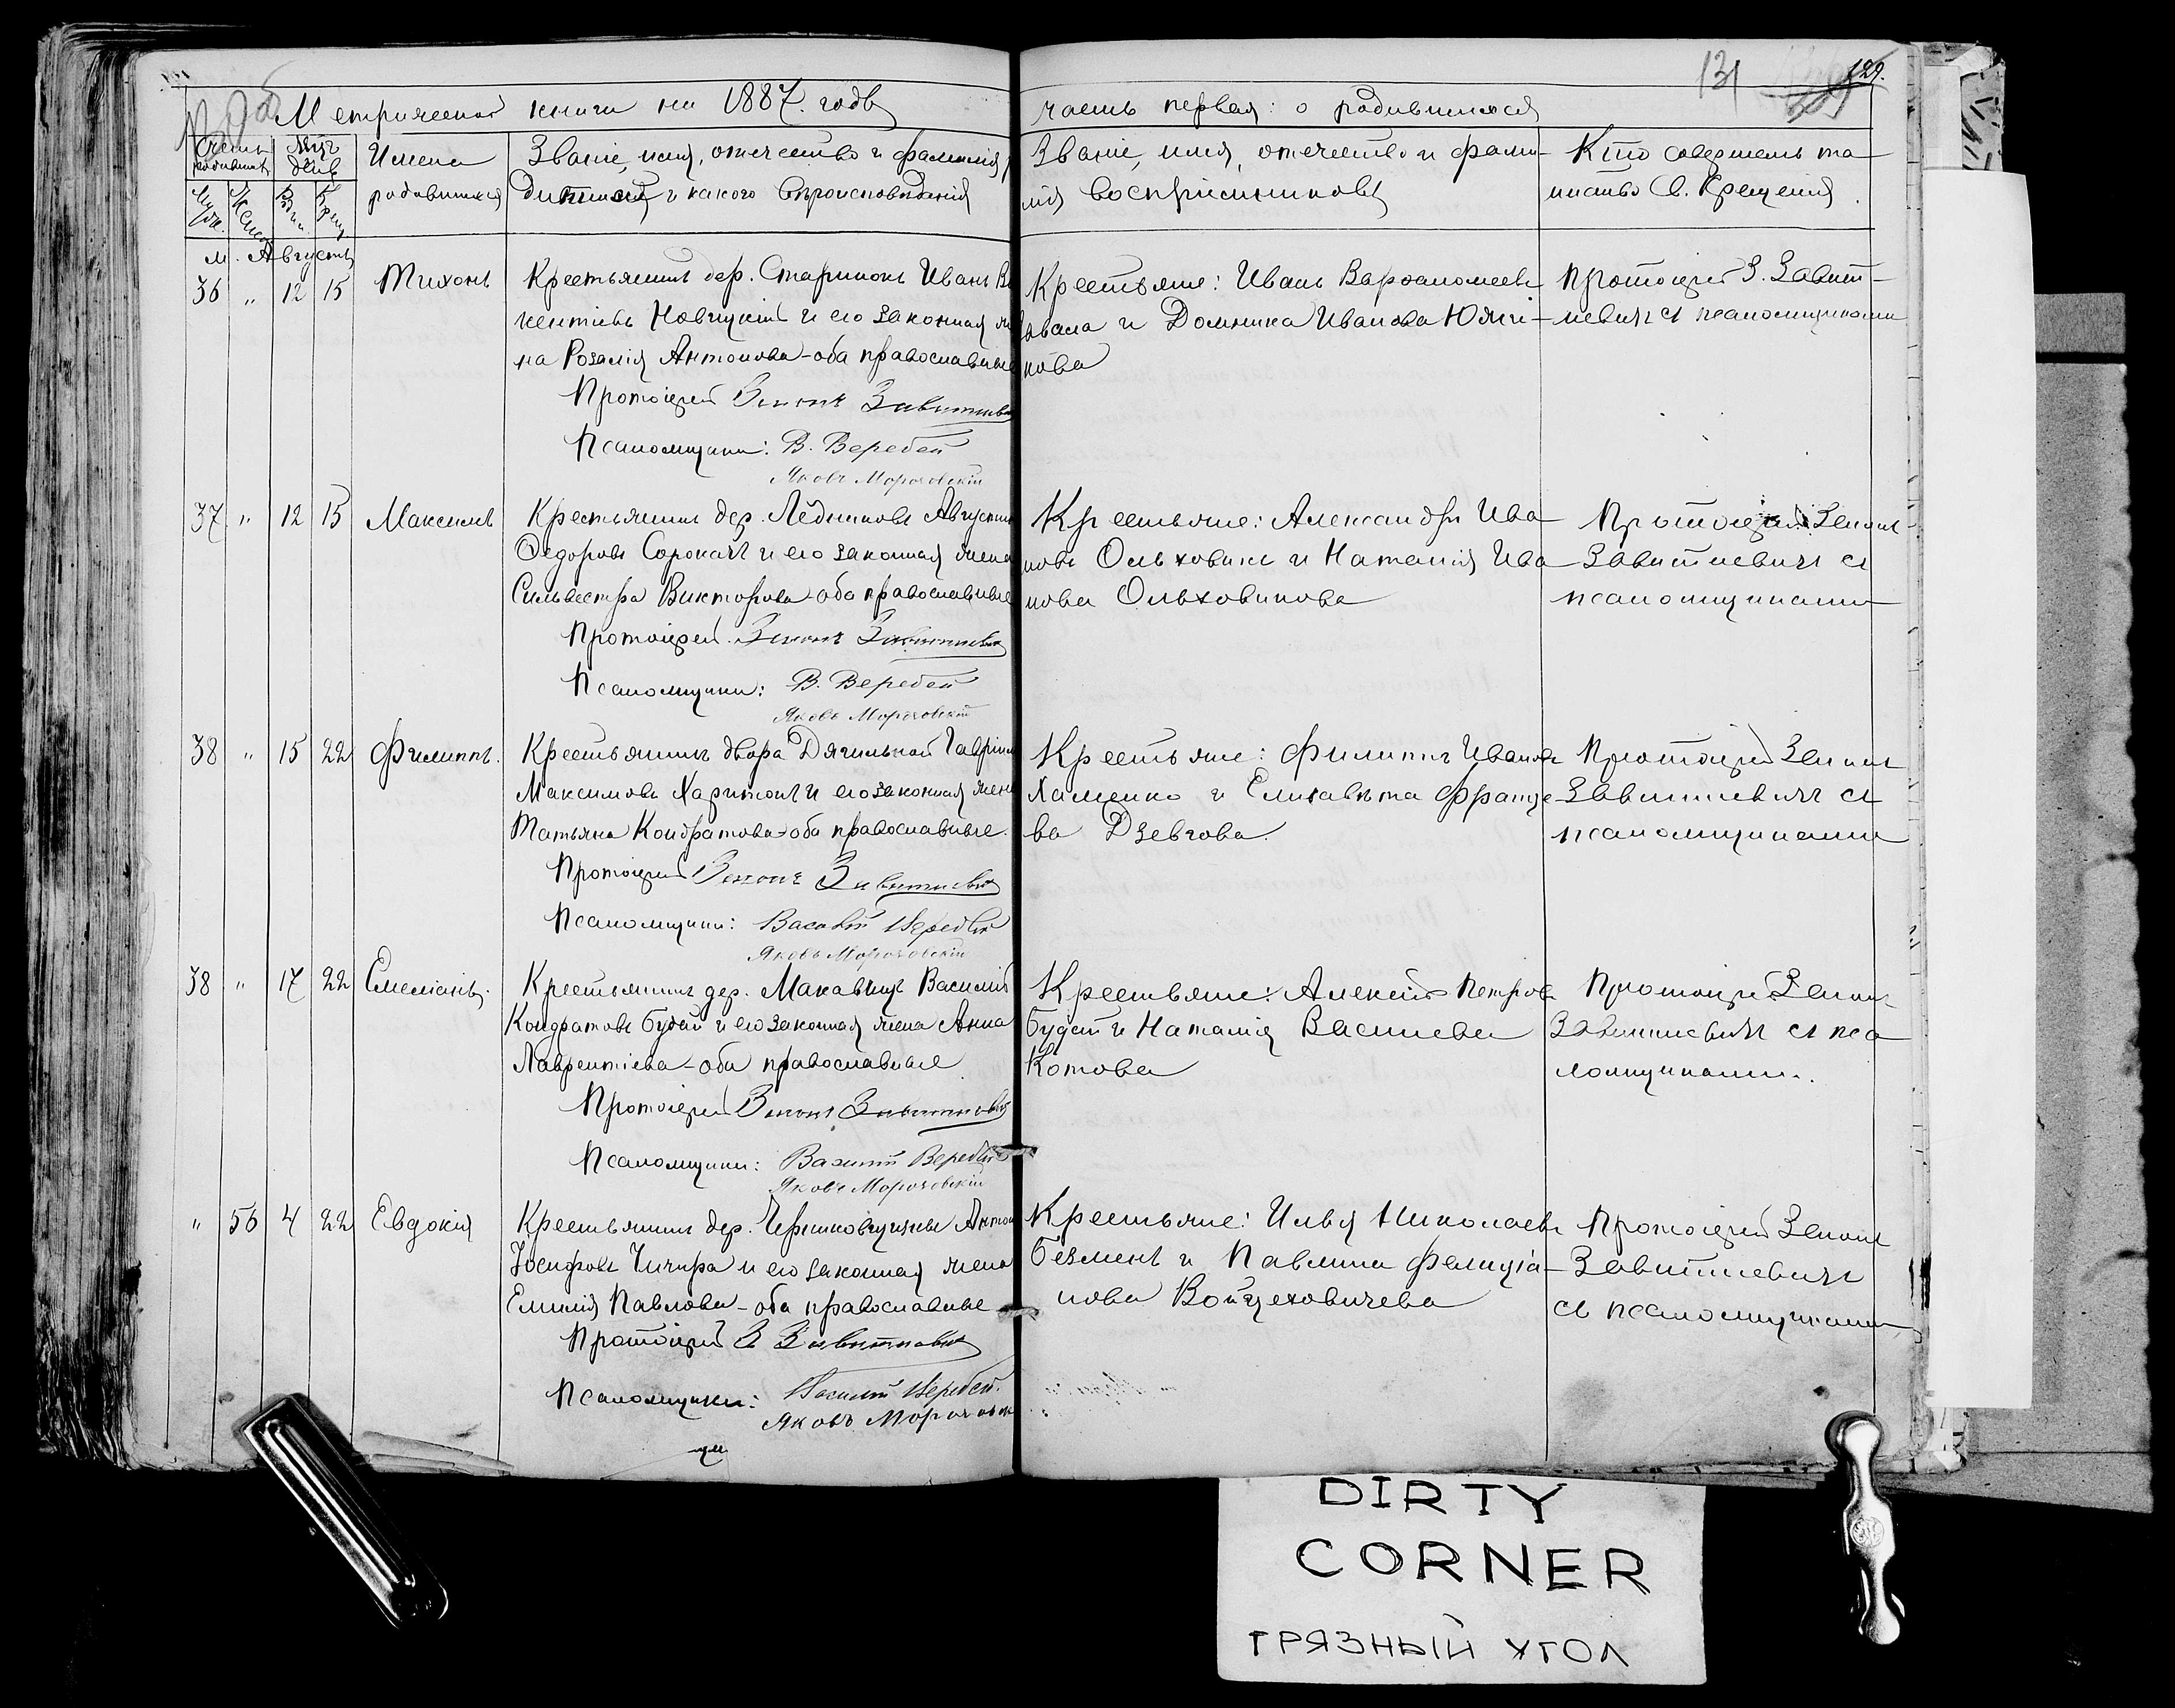 Метрической книги на 1887. годъ
часть первая: о родившихся
131
129.
Счетъ родившихся
Мужс.
Женс.
Мѣс. день
Рожд.
Крещ.
Имена
родившихся
Званіе, имя, отечество и фамилія ро
дителей, и какого вѣроисповѣданія
Званіе, имя, отечество и фами-
лія воспріемниковъ
Кто совершалъ та-
инство Св. Крещенія.
м. Августъ
36 " 12 15 Тихонъ
Крестьянинъ дер. Старинокъ Иванъ Ви
кентіевъ Новицкій и его законная же
на Розалія Антонова - оба православные
Протоіерей Зенонъ Завитневичъ
Псаломщики: В. Веребей
Яковъ Мороховскій
Крестьяне: Иванъ Варѳоломеевъ
и Домника Иванова Юхи-
кова
Протоіерей З. Завит-
невичъ съ псаломщиками
37 " 12 15 Максимъ
Крестьянинъ дер. Лѣдниковъ Августинъ
Ѳедоровъ Сорокачъ и его законная жена
Сильвестра Викторова - оба православные
Протоіерей Зенонъ Завитневичъ
Псаломщики: В. Веребей
Яковъ Мороховскій
Крестьяне: Александръ Ива-
новъ Ольховикъ и Наталія Ива-
нова Ольховикова
Протоіерей Зенонъ
Завитневичъ съ
псаломщиками
38 " 15 22 Филиппъ.
Крестьянинъ двора Дягильной Гавріилъ
Максимовъ Харитонъ и его законная жена
Татьяна Кондратова - оба православные.
Протоіерей Зенонъ Завитневичъ
Псаломщики: Василій Веребей
Яковъ Мороховскій
Крестьяне: Филиппъ Ивановъ
Хаменко и Елизавета Францо-
ва Дзевгова.
Протоіерей Зенонъ
Завитневичъ съ
псаломщиками
38 " 17 22 Емеліанъ.
Крестьянинъ дер. Макавчицъ Василій
Кондратовъ Будай и его законная жена Анна
Лаврентіева - оба православные
Протоіерей Зенонъ Завитневичъ
Псаломщики: Василій Веребей
Яковъ Мороховскій
Крестьяне: Алексій Петровъ
Будай и Наталія Васильева
Котова
Протоіерей Зенонъ
Завитневичъ съ пса
ломщиками.
" 56 4 22 Евдокія
Крестьянинъ дер. Антонъ
Іосифовъ Чичира и его законная жена
Емилія Павлова - оба православные
Протоіерей З Завитневичъ
Псаломщики: Василій Веребей.
Яковъ Мороховск
Крестьяне: Илья Николаевъ
Безменъ и Павлина Фелиціа-
нова Войцеховичева
Протоіерей Зенонъ
Завитневичъ
съ псаломщиками
DIRTY
CORNER
ГРЯЗНЫЙ УГОЛ